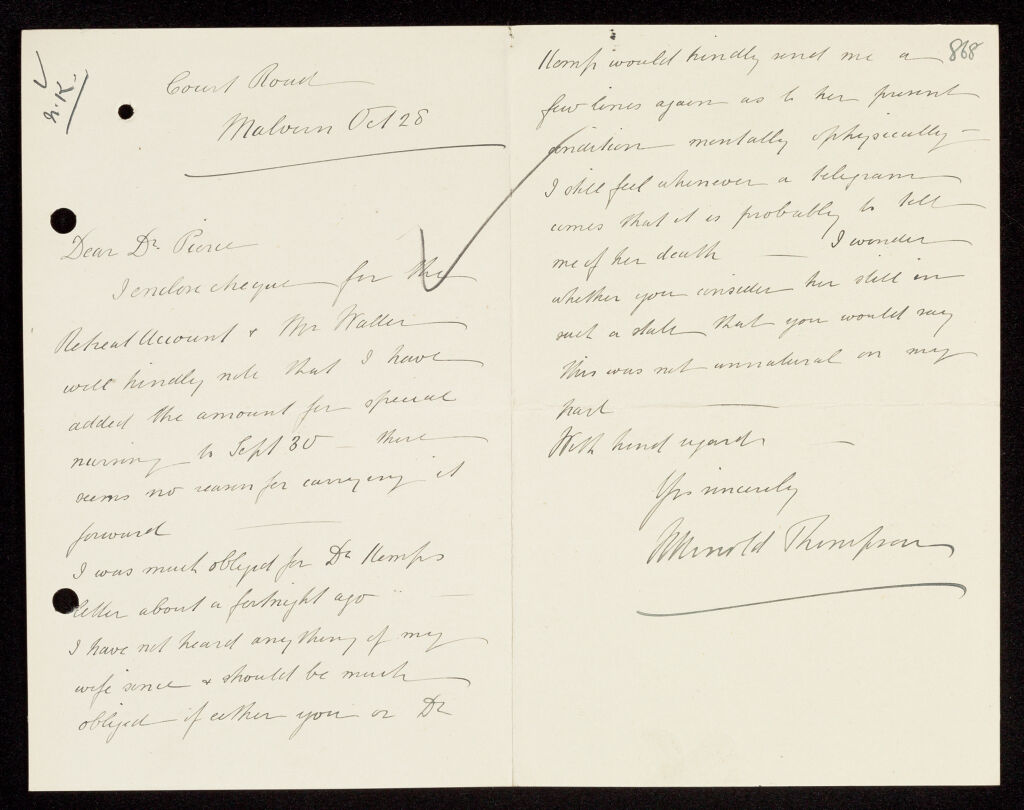 N.K.
Court Road
Malvern Oct 28
Dear Dr Pierce
I enclose cheque for the
Retreat Account & Mr Waller
will kindly note that I have
added the amount for special
nursing to Sept 30 – there
seems no reason for carrying it
forward
I was much obliged for Dr Kemps
letter about a fortnight ago
I have not heard anything of my
wife since & should be much
obliged if either you or Dr
868
Kemp would kindly send me a
few lines again as to her present
condition mentally & physically –
I still feel whenever a telegram
comes that it is probably to tell
me of her death — I wonder
whether you consider her still in
such a state that you would say
this was not unnatural on my
part
With kind regards –
Yrs sincerely
Arnold Thompson